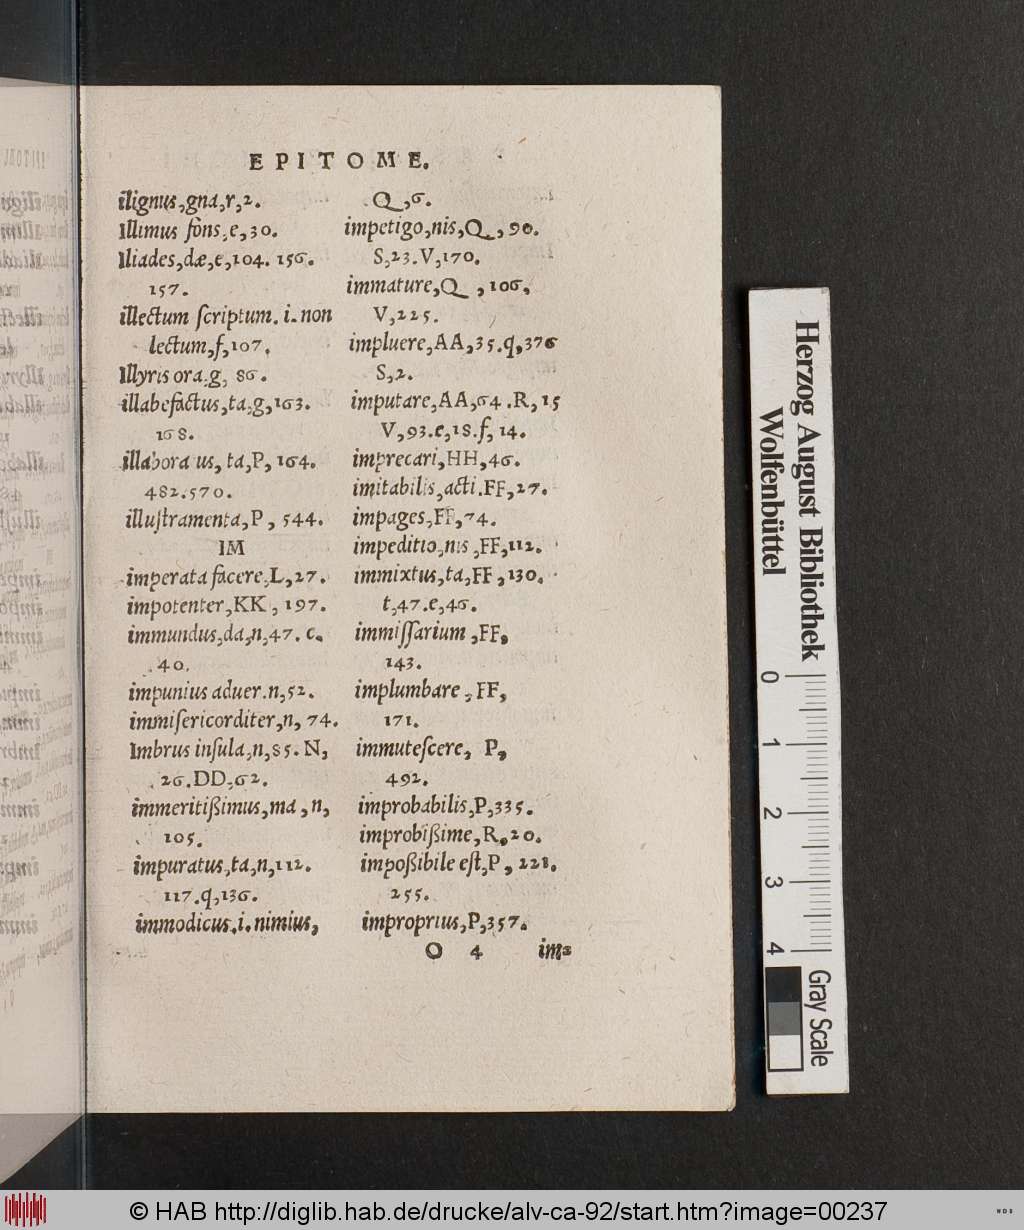 EPITOME.
ilignus,gna,r,2.
Illimus fons,e,30.
Iliades,dæ,e,104. 156.
157.
illectum ſcriptum. i. non
lectum,f,107.
Illyris ora.g, 86.
illabefactus,ta,g,163.
168.
illabora us, ta,P, 164.
482.570.
illuſtramenta,P, 544.
IM
imperata facere,L,27.
impotenter,KK, 197.
immundus,da,n,47. c.
40.
impunius aduer.n,52.
immiſericorditer,n, 74.
Imbrus inſula,n,85. N,
26.DD,62.
immeritißimus,ma,n,
105.
impuratus,ta,n,112.
117.q,136.
immodicus.i.nimius,
Q,6.
impetigo,nis,Q, 90.
S,23.V,170.
immature,Q ,106,
V,225.
impluere,AA,35.q,376
S,2.
imputare,AA,64.R,15
V,93.e,18.f, 14.
imprecari,HH,46.
imitabilis,acti.FF,27.
impages,FF,74.
impeditio,nis,FF,112.
immixtus,ta,FF,130.
t,47.e,46.
immiſſarium,FF,
143.
implumbare,FF,
171.
immuteſcere, P,
492.
improbabilis,P,335.
improbißime,R,20.
impoßibile eſt,P, 228.
255.
improprius,P,357.
O 4 im=
Herzog August Bibliothek
Wolfenbüttel
0 1 2 3 4
Gray Scale
© HAB http://diglib.hab.de/drucke/alv-ca-92/start.htm?image=00237